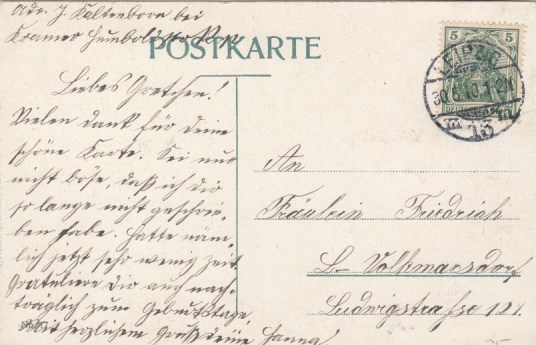 Adr. J. Kaltenborn bei
Kramer Humboldtstr
POSTKARTE
5 5
LEIPZIG
13
Liebes Gretchen!
Vielen dank für deine
schöne Karte. Sei nur
nicht böse, daß ich dir
so lange nicht geschrie-
ben habe. Hatte näm-
lich jetzt sehr wenig zeit.
Gratuliere dir auch nach-
träglich zum Geburtstage
Mit herzlichem Gruß deine Hanna
An
Fräulein Friedrich
L- Volkmarsdorf
Ludwigstraße 121.